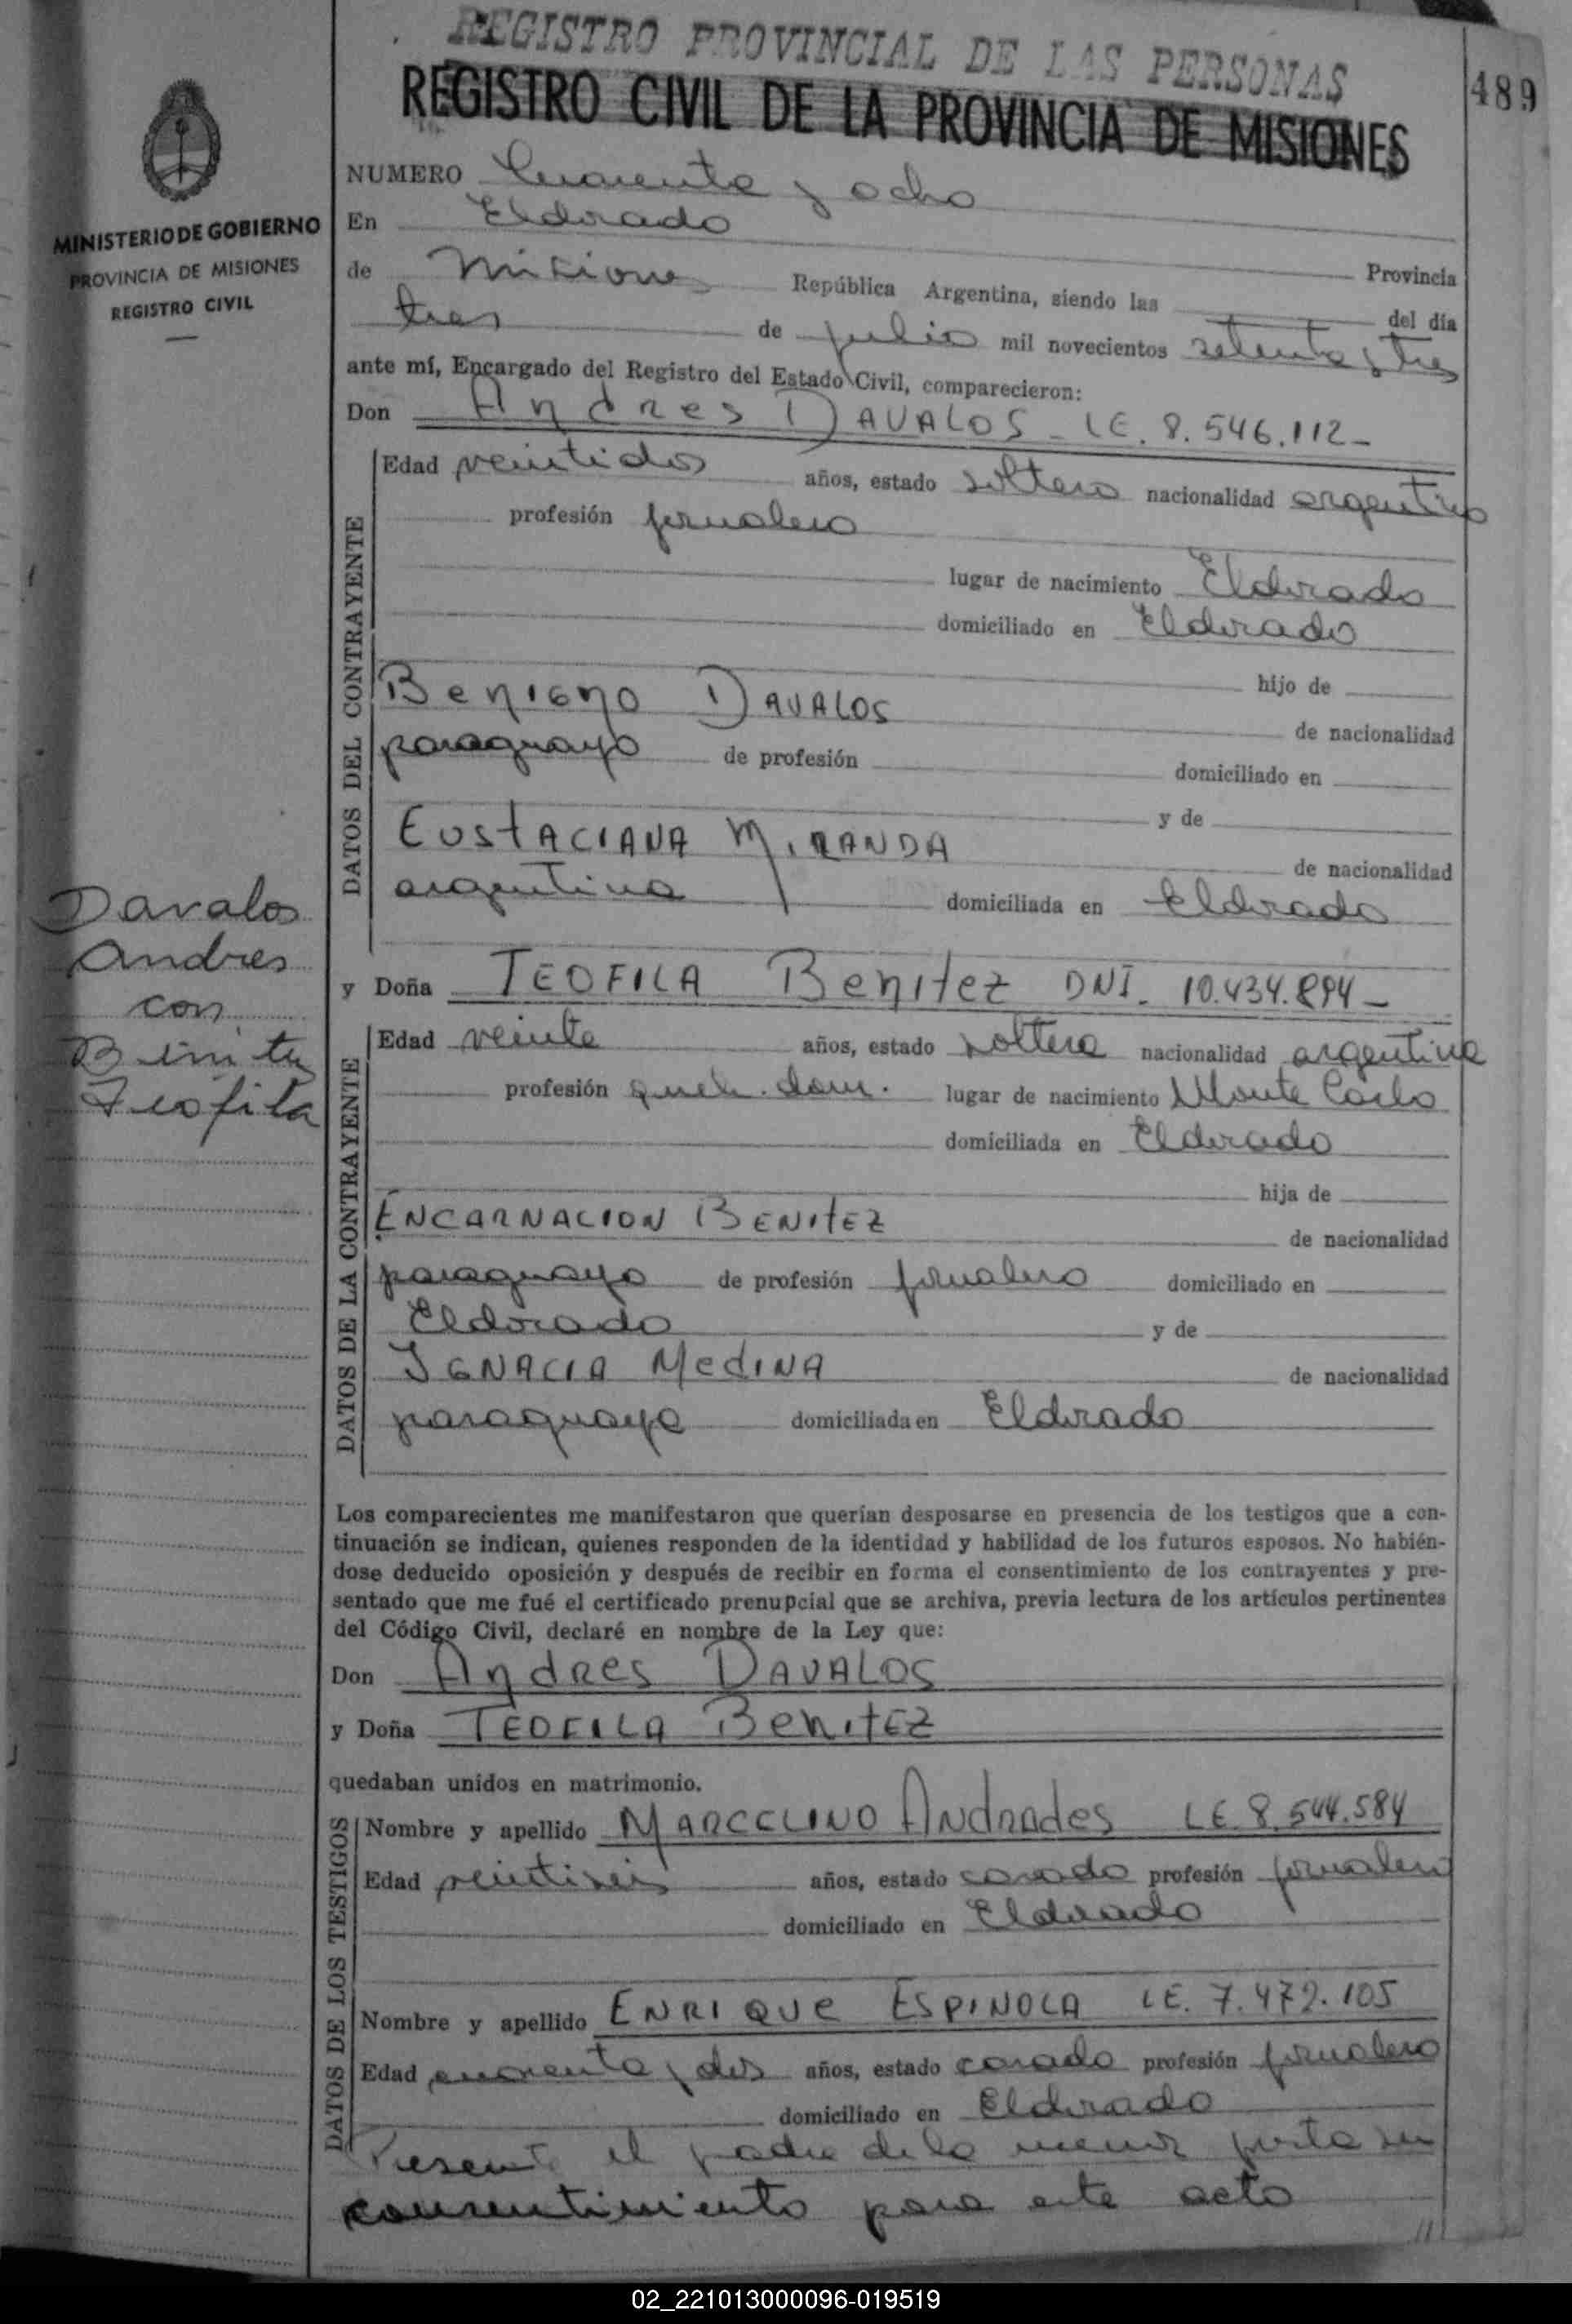 REGISTRO PROVINCIAL DE LAS PERSONAS
REGISTRO CIVIL DE LA PROVINCIA DE MISIONES
489
MINISTERIO DE GOBIERNO
PROVINCIA DE MISIONES
REGISTRO CIVIL
NUMERO Cuarenta y ocho
En Eldorado Provincia
de Misiones República Argentina, siendo las del día
tres de julio mil novecientos setenta y tres
ante mí, Encargado del Registro del Estado Civil, comparecieron:
Don Andres DAVALOS - LE. 8.546.112-
DATOS DEL CONTRAYENTE
Edad veintidos años, estado soltero nacionalidad argentino
profesión jornalero
lugar de nacimiento Eldorado
domiciliado en Eldorado
hijo de
Benigno DAVALOS de nacionalidad
paraguayo de profesión domiciliado en
y de
EUStACIANA MIRANDA de nacionalidad
argentina domiciliada en Eldorado
Davalos
Andres
con
Benitez
Teofila
y Doña TEOFILA Benitez DNI. 10.434.894-
DATOS DE LA CONTRAYENTE
Edad veinte años, estado soltera nacionalidad argentina
profesión queh. dom. lugar de nacimiento Monte Carlo
domiciliada en Eldorado
hija de
ENCARNACION BENItEZ de nacionalidad
paraguayo de profesión jornalero domiciliado en
Eldorado y de
IGNACIA MedINA de nacionalidad
paraguaya domiciliada en Eldorado
Los comparecientes me manifestaron que querían desposarse en presencia de los testigos que a con-
tinuación se indican, quienes responden de la identidad y habilidad de los futuros esposos. No habién-
dose deducido oposición y después de recibir en forma el consentimiento de los contrayentes y pre-
sentado que me fué el certificado prenupcial que se archiva, previa lectura de los artículos pertinentes
del Código Civil, declaré en nombre de la Ley que:
Don Andres DAVALOS
y Doña TEOFILA BenitEZ
quedaban unidos en matrimonio.
DATOS DE LOS TESTIGOS
Nombre y apellido MARCELINO Andrades LE. 8.544.584
Edad veintiseis años, estado casado profesión jornalero
domiciliado en Eldorado
Nombre y apellido ENRIQUE ESPINOLA LE. 7.472.105
Edad cuarenta y dos años, estado casado profesión jornalero
domiciliado en Eldorado
Presente el padre de la menor presta su
consentimiento para este acto
02_221013000096-019519